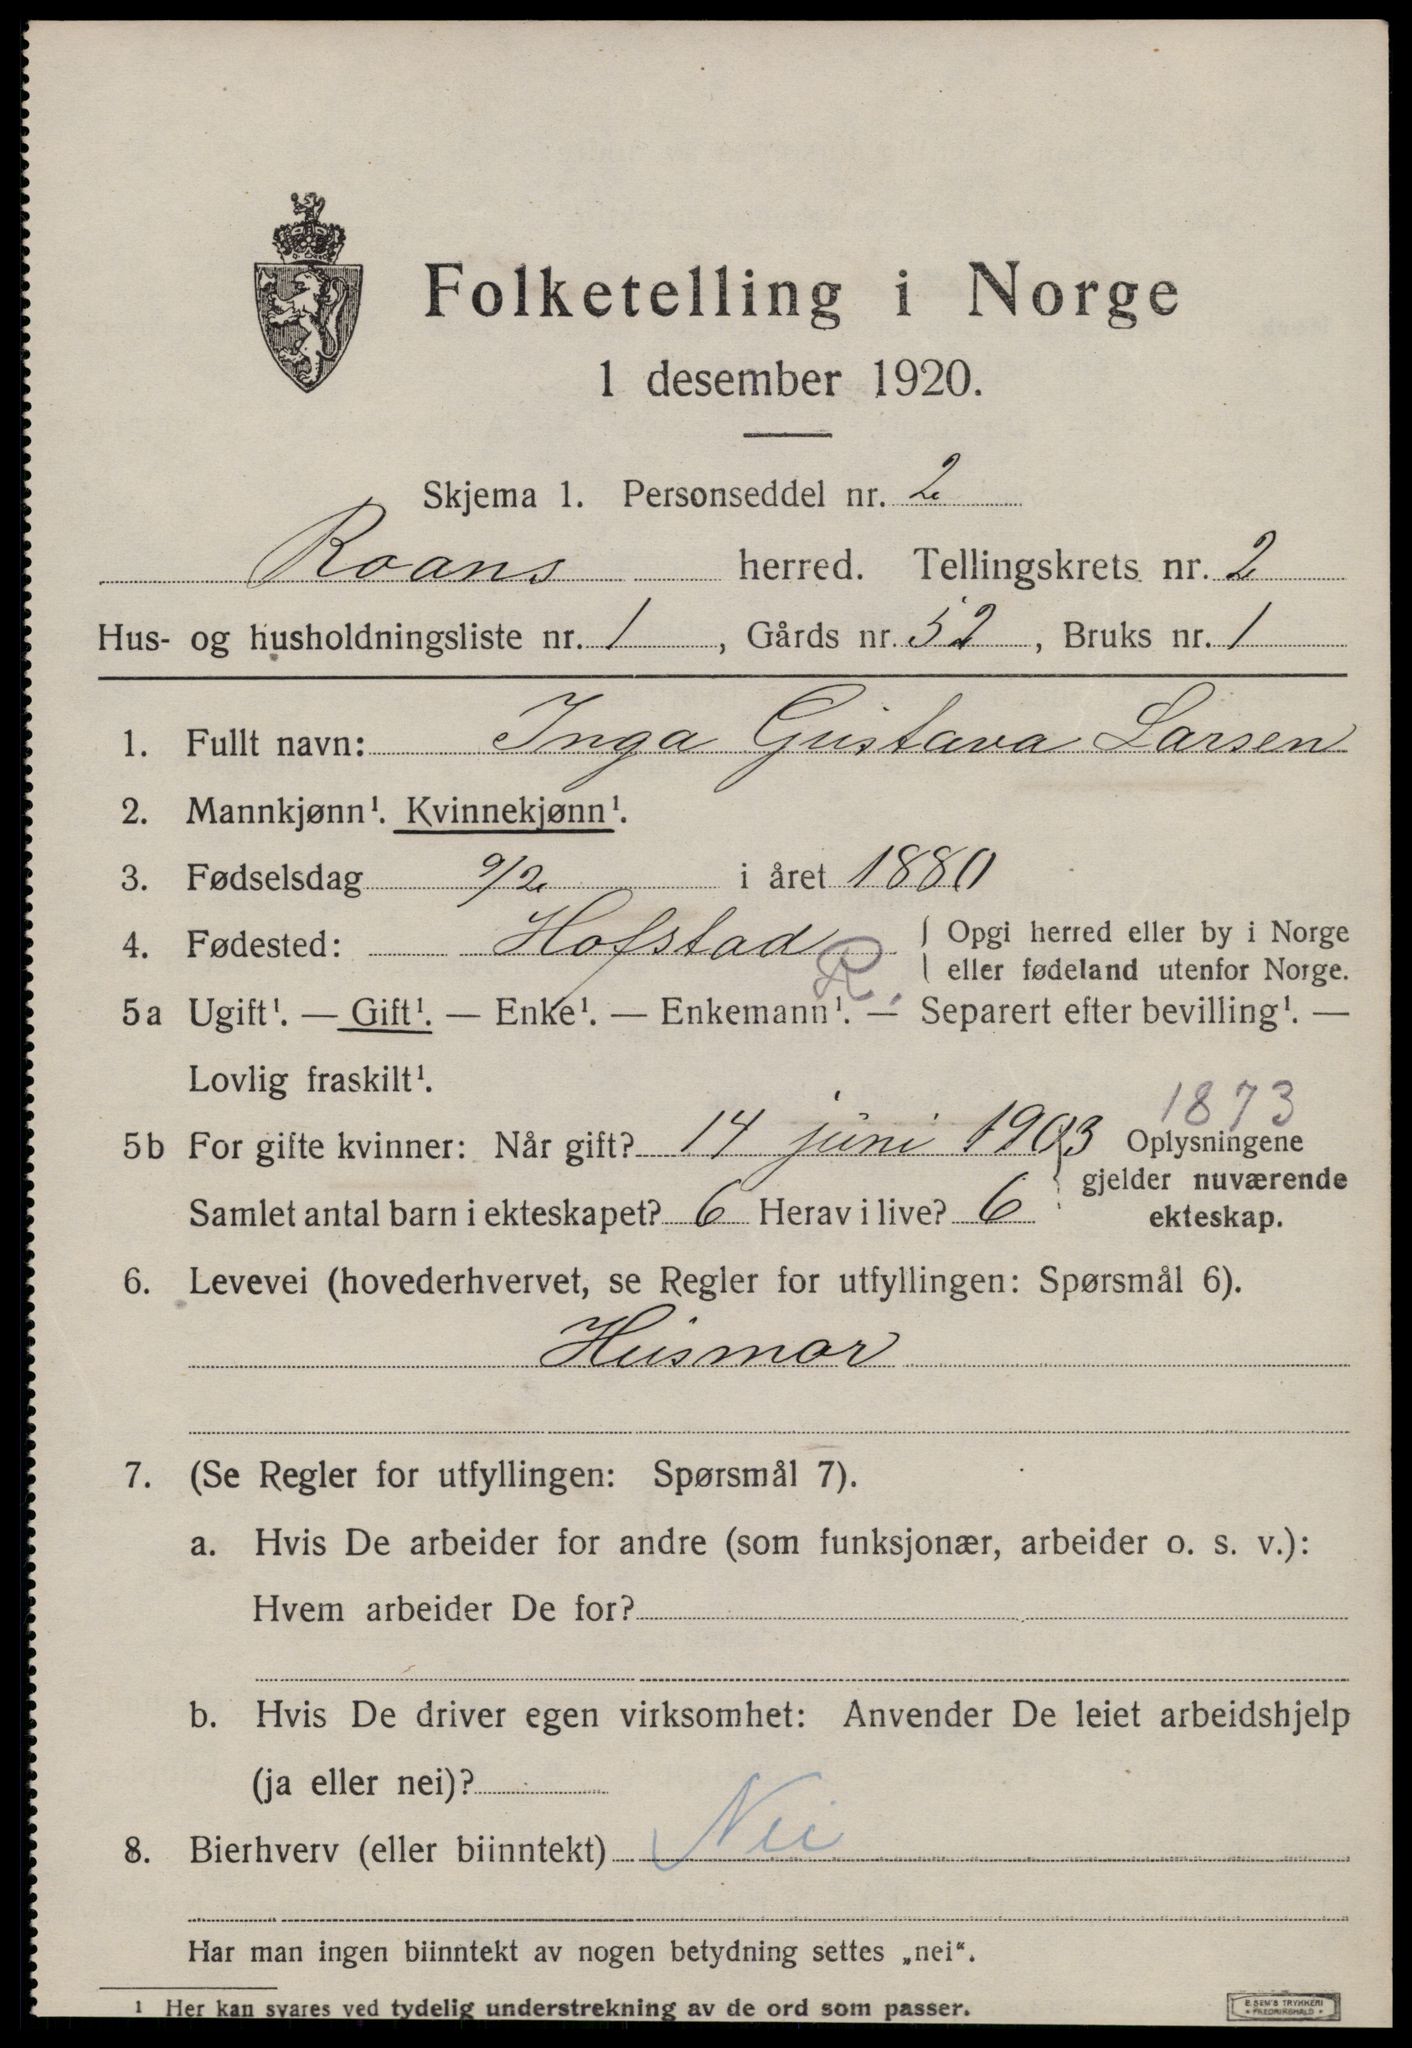 Folketelling i Norge
1 desember 1920.
Skjema 1. Personseddel nr. 2
Roans herred. Tellingskrets nr. 2
Hus- og husholdningsliste nr. 1, Gårds nr. 52, Bruks nr. 1
1. Fullt navn: Inga Gustava Larsen
2. Mannkjønn¹. Kvinnekjønn¹.
3. Fødselsdag 9/2 i året 1880
4. Fødested: Hofstad R. { Opgi herred eller by i Norge
{ eller fødeland utenfor Norge.
5a Ugift¹. — Gift¹. — Enke¹. — Enkemann¹. — Separert efter bevilling¹. —
Lovlig fraskilt¹.
1873
5b For gifte kvinner: Når gift? 14 juni 1903 } Oplysningene
gjelder nuværende
Samlet antal barn i ekteskapet? 6 Herav i live? 6 ekteskap.
6. Levevei (hovederhvervet, se Regler for utfyllingen: Spørsmål 6).
Husmor
7. (Se Regler for utfyllingen: Spørsmål 7).
a. Hvis De arbeider for andre (som funksjonær, arbeider o. s. v.):
Hvem arbeider De for?
b. Hvis De driver egen virksomhet: Anvender De leiet arbeidshjelp
(ja eller nei)?
8. Bierhverv (eller biinntekt) Nei
Har man ingen biinntekt av nogen betydning settes „nei“.
¹ Her kan svares ved tydelig understrekning av de ord som passer.
E. SEM'S TRYKKERI
• FREDRIKSHALD •